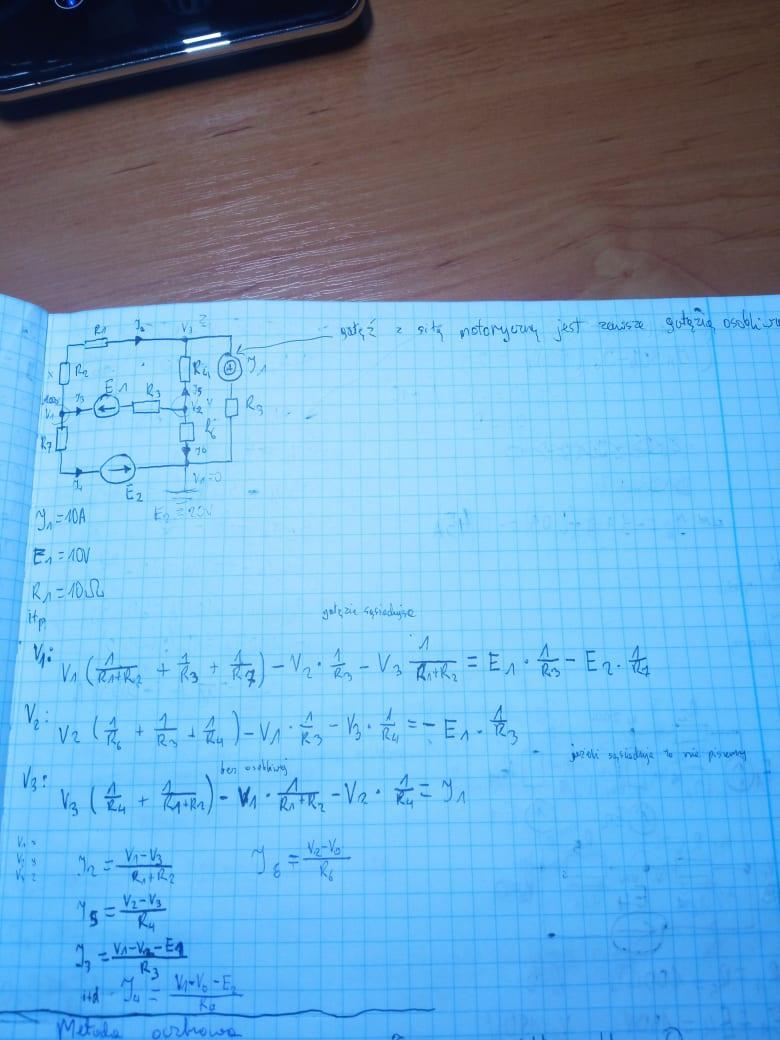 R1 I2 V3 Z
gałęź z siłą motoryczną jest zawsze gałęzią osobliwą
R2 R4 J1
E1 I3 R3 I5
V1 V2 Y R3
R7 R6
I6
I4 E2 V1=0
E2=20V
J1=10A
E1=10V
R1=10Ω
itp
gałęzie sąsiadujące
V1: V1 (1/(R1+R2) + 1/R3 + 1/R7) - V2 · 1/R3 - V3 1/(R1+R2) = E1 · 1/R3 - E2 · 1/R7
V2: V2 (1/R6 + 1/R3 + 1/R4) - V1 · 1/R3 - V3 · 1/R4 = - E1 · 1/R3
jeżeli sąsiaduje to nie piszemy
bez osobliwej
V3: V3 (1/R4 + 1/(R1+R2)) - V1 · 1/(R1+R2) - V2 · 1/R4 = J1
V1 x
V2 y
V3 z
J2 = (V1-V3)/(R1+R2) J6 = (V2-V0)/R6
J5 = (V2-V3)/R4
J3 = (V1-V2-E1)/R3
itd J4 = (V1-V0-E2)/R0
Metoda oczkowa